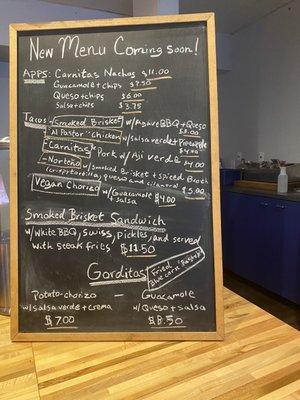 New Menu Coming Soon!
APPS: Carnitas Nachos $11.00
Guacamole + chips $7.50
Queso + chips $6.00
Salsa + chips $3.75
Tacos - Smoked Brisket w/ Agave BBQ + Queso $5.00
"Al Pastor" Chicken w/ salsa verde + Pineapple $4.00
"Carnitas" Pork w/ Aji verde $4.00
- Norteño w/ Smoked Brisket + spiced Broth
(crispy tortilla, queso and cilantro) $5.00
Vegan Chorizo w/ Guacamole + Salsa $4.00
Smoked Brisket Sandwich
w/ White BBQ, Swiss, Pickles, and served
with Steak Fries, $11.50
Gorditas Fried "Stuffed" Blue corn
Potato-chorizo — Guacamole
w/ Salsa verde + crema w/ Queso + salsa
$7.00 $8.50